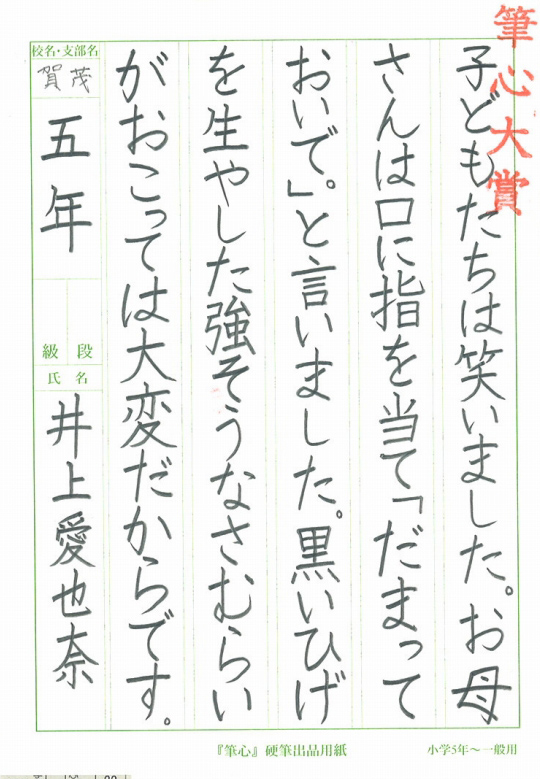 筆心大賞
子どもたちは笑いました。お母
さんは口に指を当て「だまって
おいで。」と言いました。黒いひげ
を生やした強そうなさむらい
がおこっては大変だからです。
校名・支部名
賀茂
五年
段級
氏名
井上愛也奈
『筆心』硬筆出品用紙
小学5年〜一般用